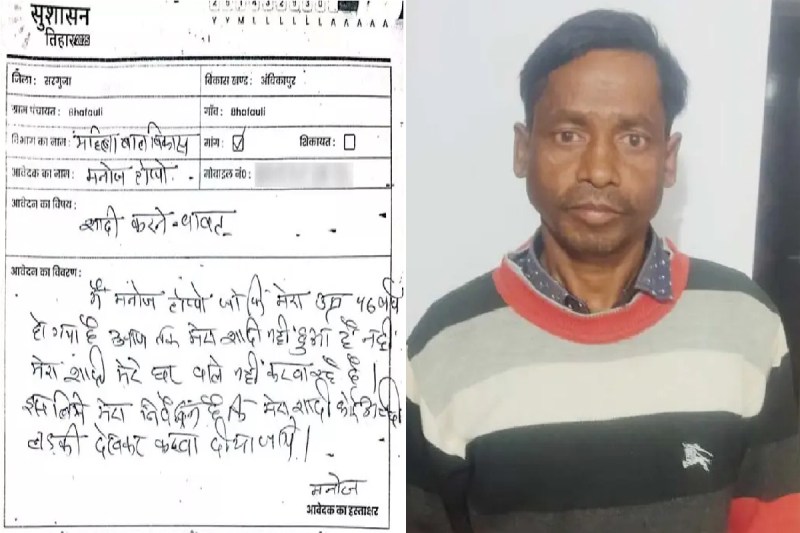 सुशासन
तिहार 2025
Y Y M L L L L L A A A A A
जिला: सरगुजा
विकास खण्ड: अंबिकापुर
ग्राम पंचायत: Bhafauli
गाँव: Bhafauli
विभाग का नाम: महिला बाल विकास
मांग: ☑ शिकायत: ☐
आवेदक का नाम: मनोज टोप्पो
मोबाईल नं0:
आवेदन का विषय:
शादी करने-बाबत
आवेदन का विवरण:
मैं मनोज टोप्पो जो कि मेरा उम्र 46 वर्ष
हो गया है आज तक मेरा शादी नहीं हुआ है नहीं
मेरा शादी मेरे घर वाले नहीं करवा रहे है।
इस लिये मेरा निवेदन है कि मेरा शादी कोई अच्छी
लड़की देखकर करवा दीया जाये।
मनोज
आवेदक का हस्ताक्षर